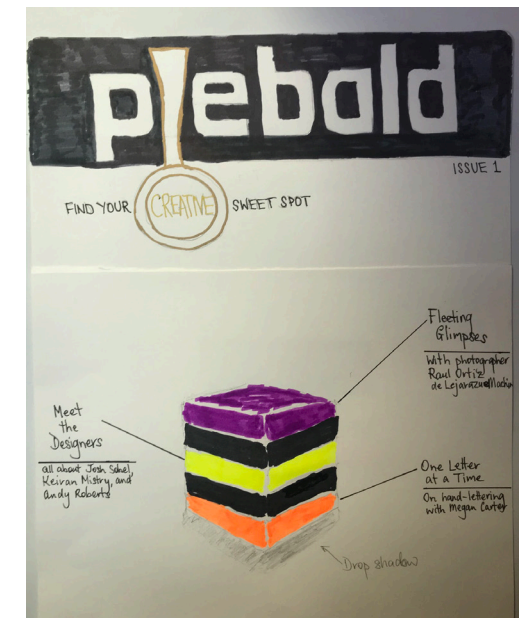 piebald
ISSUE 1
FIND YOUR CREATIVE SWEET SPOT
Fleeting
Glimpses
With photographer
Raul Ortiz
de Lejarazu Machin
Meet
the
Designers
all about Josh Sahel,
Keiran Mistry, and
Andy Roberts
One Letter
at a Time
On hand-lettering
with Megan Carter
Drop shadow